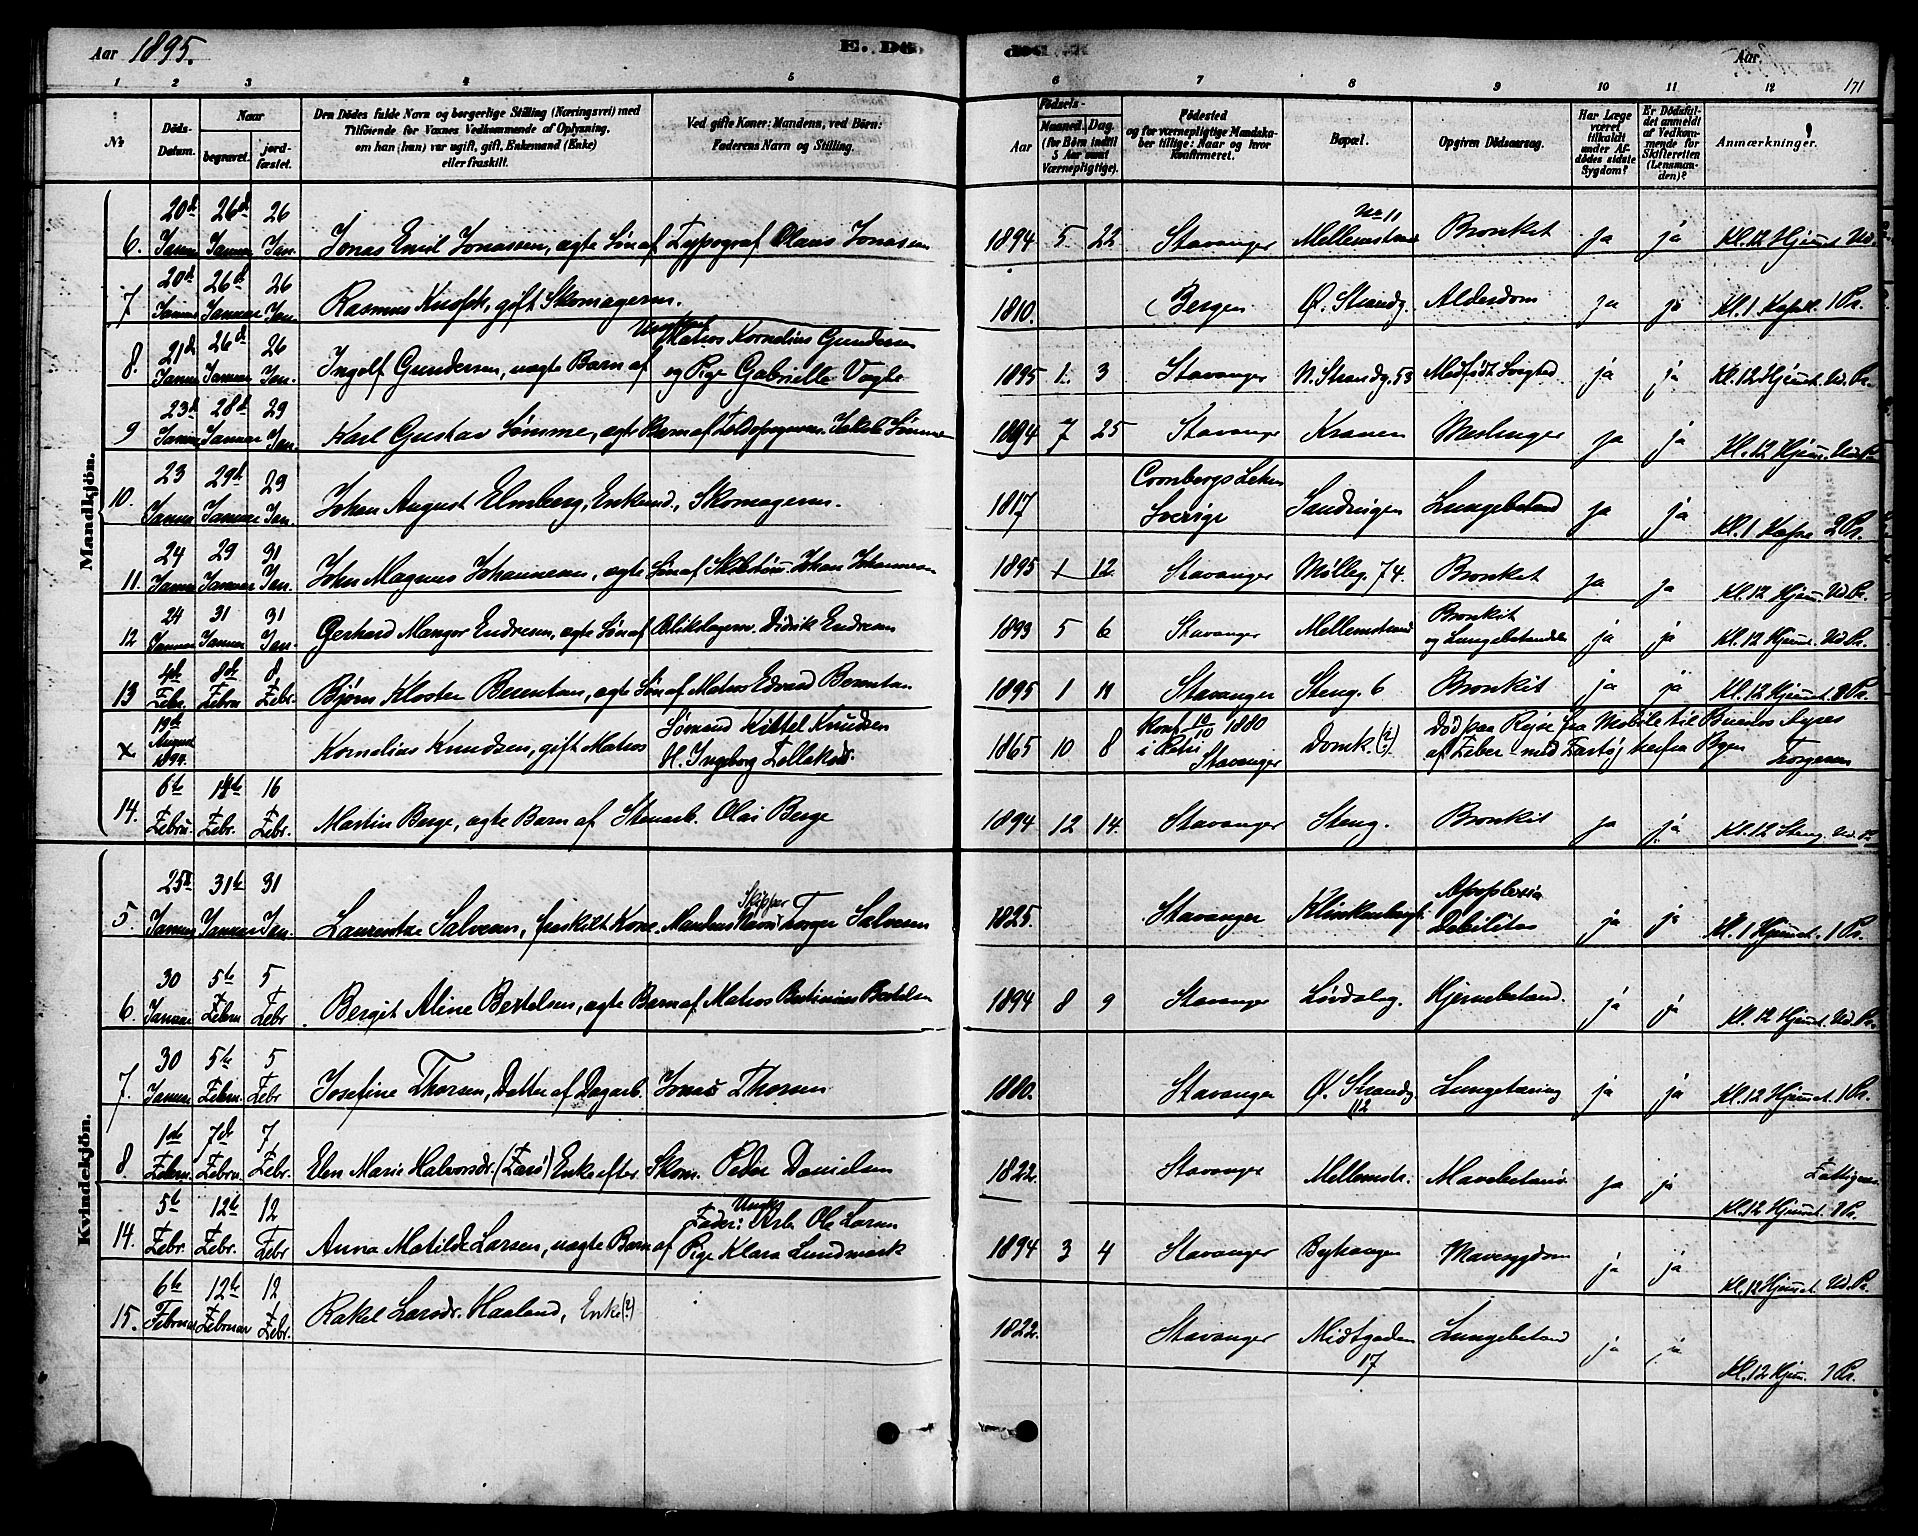 Aar 1895.
E. Dö
Aar
171
1 2 3 4 5 6 7 8 9 10 11 12
№
Döds-Datum.
Naar
begravet.
jord-fæstet.
Den Dödes fulde Navn og borgerlige Stilling (Næringsvei) med
Tilföiende for Voxnes Vedkommende af Oplysning,
om han (hun) var ugift, gift, Enkemand (Enke)
eller fraskilt.
Ved gifte Koner: Mandens, ved Börn:
Faderens Navn og Stilling.
Födsels-
Aar
Maaned. Dag.
(for Börn indtil
5 Aar samt
Værnepligtige).
Födested
og for værnepligtige Mandska-
ber tillige: Naar og hvor
Konfirmeret.
Bopæl.
Opgiven Dödsaarsag.
Har Læge
været
tilkaldt
under Af-
dödes sidste
Sygdom?
Er Dödsfal-
det anmeldt
af Vedkom-
mende for
Skifteretten
(Lensman-
den)?
Anmærkninger.
Mandkjön.
6. 20d Januar 26d Januar 26 Jan. Jonas Emil Jonassen, ægte Søn af Typograf Olaus Jonassen 1894 5 22 Stavanger Mellemstrand № 11 Bronkit ja ja Kl. 12 Hjemmet Ud.
7 20d Januar 26d Januar 26 Jan. Rasmus Knofsk, gift Skomagersv. 1810. Bergen Ø. Strandg. Alderdom ja ja Kl. 1 Kapel. 1 Pr.
8. 21d Januar 26d Januar 26 Jan. Ingolf Gundersen, uægte Barn af Matros Kornelius Gundersen
og Pige Gabrielle Vogle 1895 1. 3 Stavanger N. Strandg. 53 Medfødt Svaghed ja ja Kl. 12 Hjemmet. Ud. Pr.
9 23d Januar 28d Januar 29 Jan. Karl Gustav Sømme, ægte Barn af Jakob Sømme 1894 7 25 Stavanger Kranen Meslinger ja ja Kl. 12 Hjem. Ud. Pr.
10. 23 Januar 29d Januar 29 Jan. Johan August Elmberg, Enkemd., Skomagersv. 1817 Cronbergs Lehn
Sverige Sandvigen Lungebetænd ja ja Kl. 1 Kapel 2 Pr.
11. 24 Januar 29 Januar 31 Jan. John Magnus Johannesen, ægte Søn af Johan Johannesen 1895 1 12. Stavanger Mølleg. 74. Bronkit ja ja Kl. 12 Hjem. Ud. Pr.
12 24 Januar 31 Januar 31 Jan. Gerhard Mangor Endresen, ægte Søn af Blikslagersv. Didrik Endresen 1893 5 6 Stavanger Mellemstrand Bronkit
og Lungebetændelse ja ja Kl. 12 Hjemmet. Ud. Pr.
13 4de Febr. 8de Febru 8. Febr. Bjørn Kloster Berentsen, ægte Søn af Matros Edvard Berentsen 1895 1 11 Stavanger Steng. 6 Bronkit ja ja Kl. 12 Hjemmet. 2 Pr.
x 19de August 1894. Kornelius Knudsen, gift Matros Sømand Kittel Knudsen
H. Ingeborg 1865 10 8 Konf 10/10 1880
i Petri
Stavanger Domk. (?) Død paa Rejse fra Mobile til Buenos Ayres
af Feber - med Fartøj herfra Byen
14. 6te Febru. 14de Febr. 16 Febr. Martin Berge, ægte Barn af Stenarb. Olai Berge 1894 12 14. Stavanger Steng. Bronkit ja ja Kl. 12 Steng. Ud. Pr.
Kvindekjön.
5. 25d Januar 31te Januar 31 Jan. Laurentse Salvesen, fraskilt Kone. Mandens Navn: Skipper Torger Salvesen 1825. Stavanger Klinkenbergt. Apoplexia
Debilitas ja ja Kl. 1 Hjemmet. 1 Pr.
6. 30 Januar 5te Febru. 5 Febr Bergit Aline Bertelsen, ægte Barn af Matros Bertinius Bertelsen 1894 8 9 Stavanger Løvdalsg. Hjernebetænd. ja ja Kl. 12 Hjemmet. Ud. Pr.
7. 30 Januar 5te Febru. 5 Febr Josefine Thorsen, Datter af Dagarb. Jonas Thorsen 1880. Stavanger Ø. Strandg.
112 Lungetæring ja ja Kl. 12 Hjemmet. 1 Pr.
8 1ste Febru. 7de Febru. 7 Febr. Elen Marie Halvorsdr. Enke efter Skom. Peder Danielsen 1822. Stavanger Mellemstr. Mavebetænd. ja ja
Kl. 12 Hjemmet. 2 Pr.
14. 5te Febr. 12te Febr. 12 Febr Anna Matilde Larsen, uægte Barn af Fader: Ungk. Arb. Ole Larsen
Pige Klara Lundmark 1894 3 4 Stavanger Byhaugen Mavesygdom ja ja Kl. 12 Hjemmet Ud. Pr.
15. 6te Februar 12te Februar 12 Febr. Rakel Larsdr. Haaland, Enke (?) 1822. Stavanger Midtgaden
17 Lungebetænd ja ja Kl. 12 Hjem. 1 Pr.